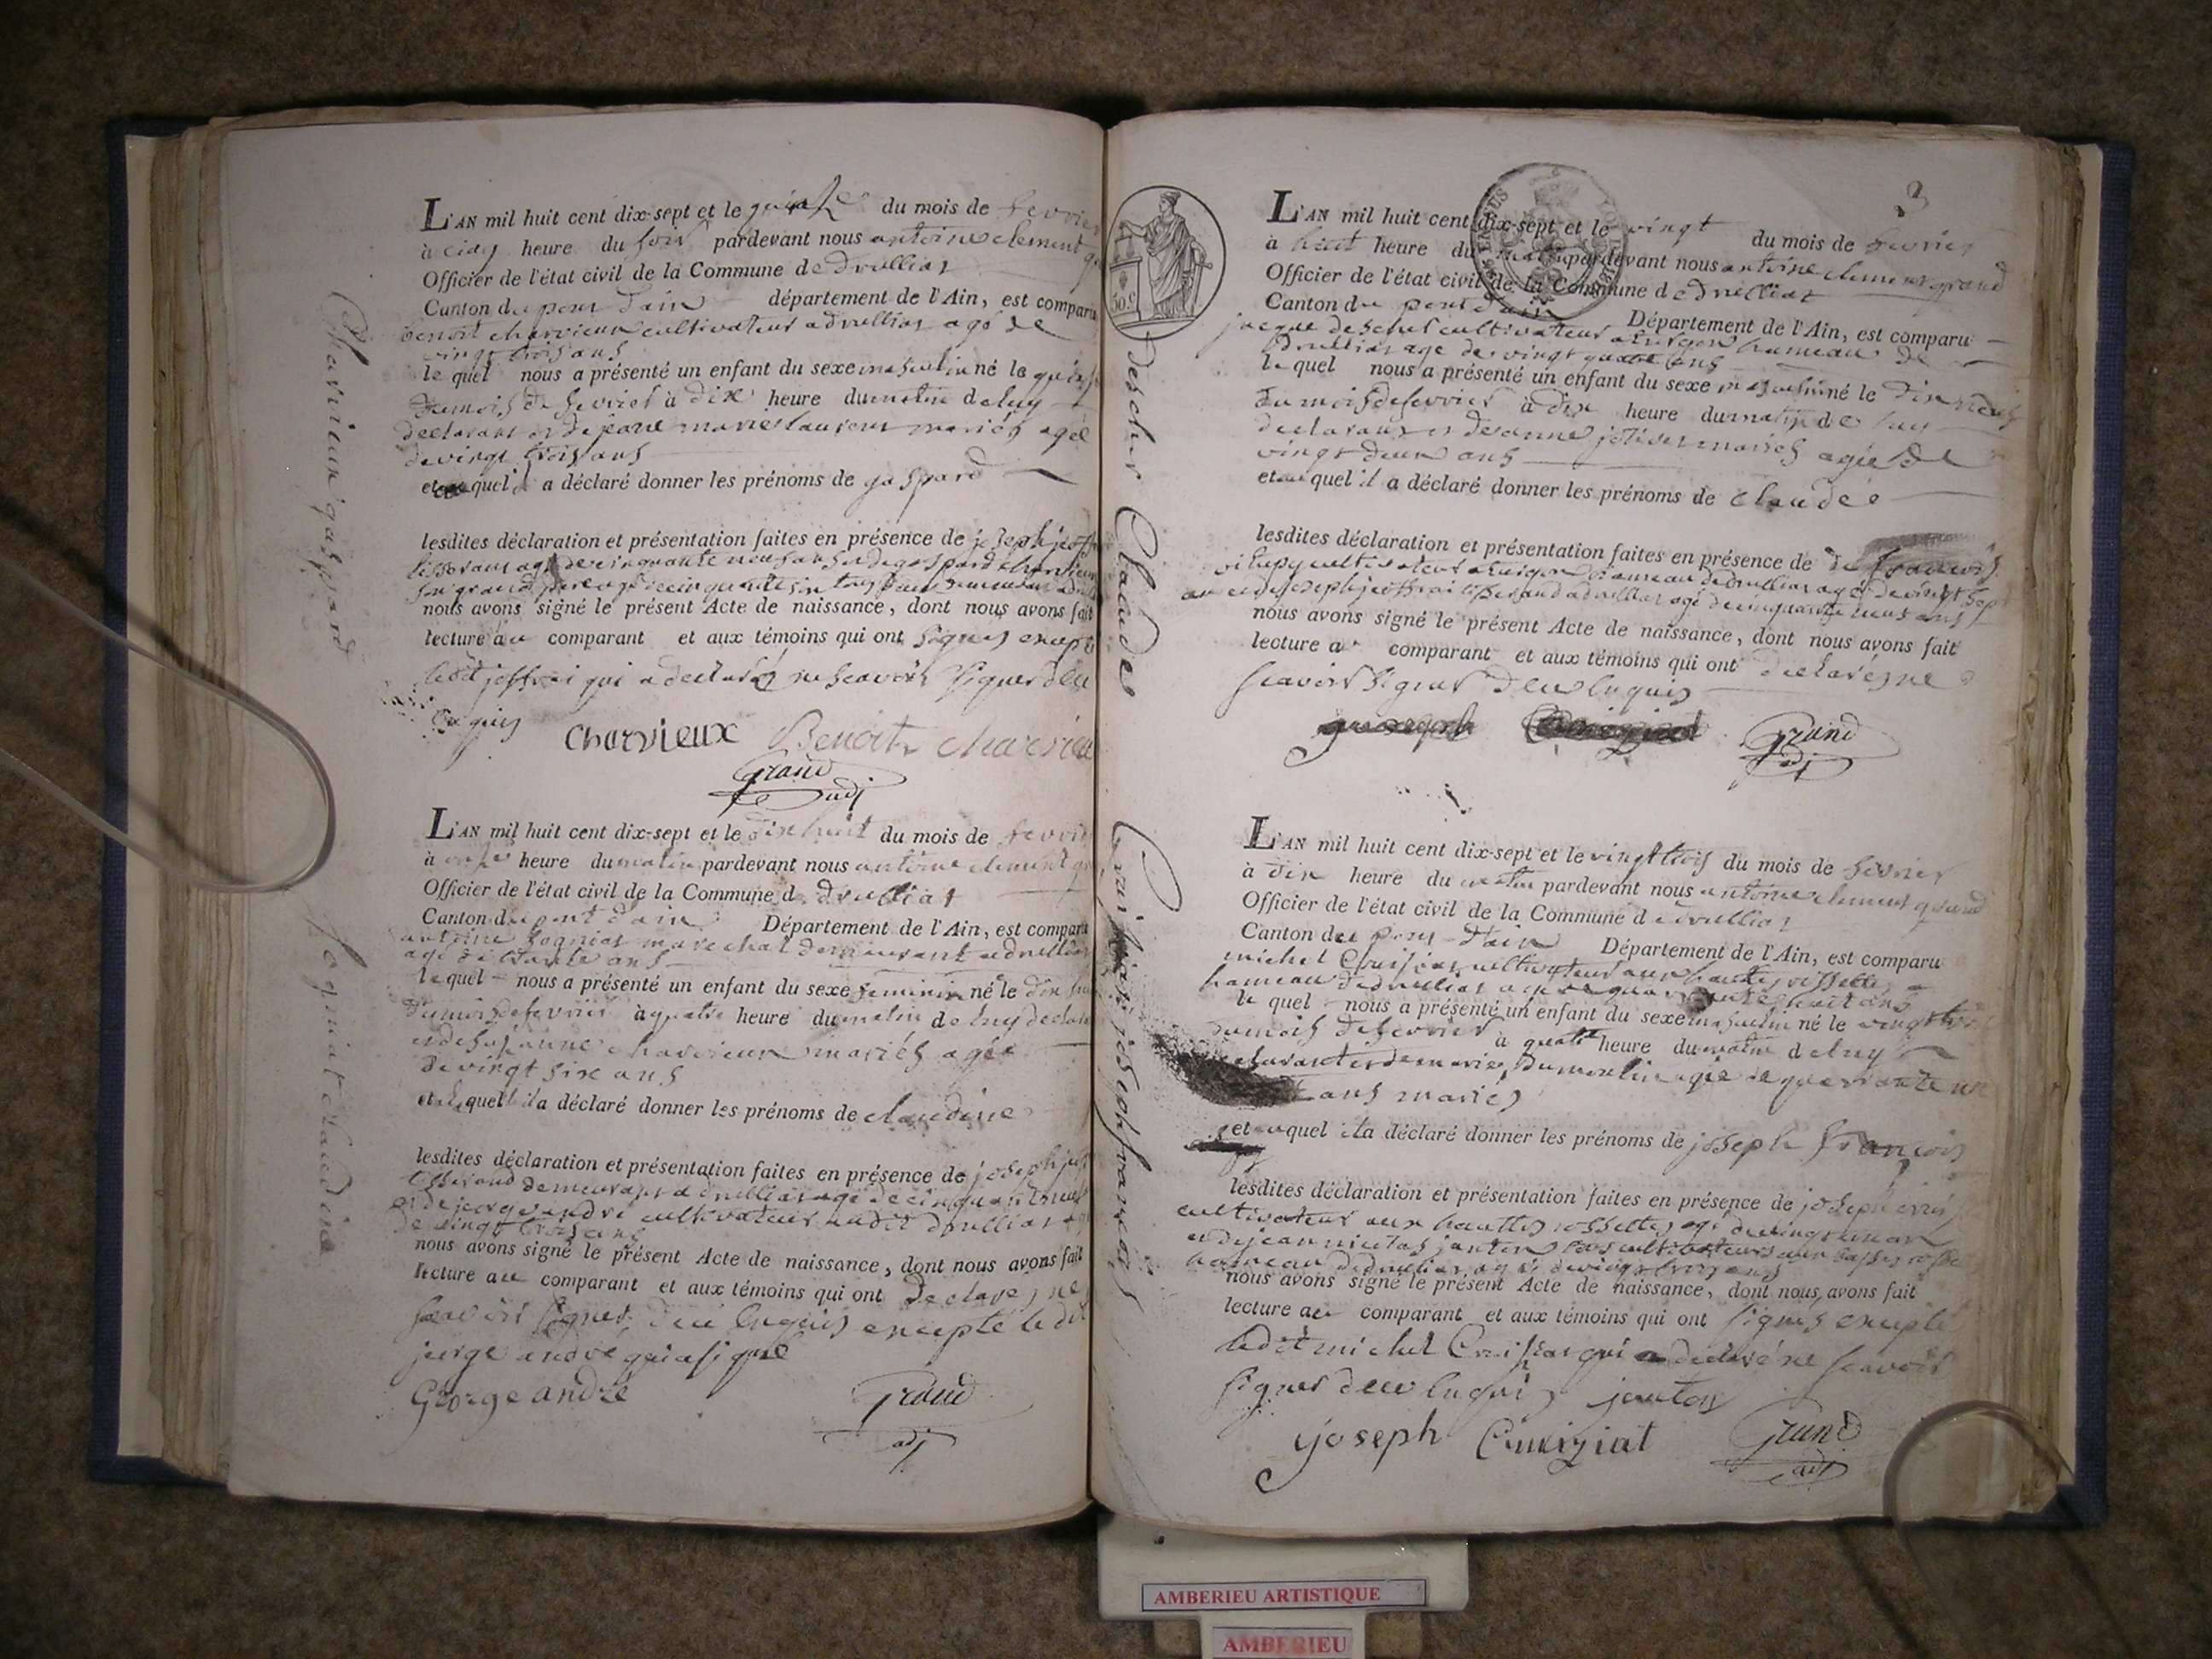 L'AN mil huit cent dix-sept et le quinze du mois de fevrier
à cinq heure du soir pardevant nous antoine clement
Officier de l'état civil de la Commune de Druillias
Canton du pont d'ain département de l'Ain, est comparu
benoit charvieux cultivateur a druillias agé de
vingt trois ans
le quel nous a présenté un enfant du sexe masculin né le quinze
du mois de fevrier à dix heure du matin de luy
declarant et de jeane marie mariés agée
de vingt trois ans
et quel a déclaré donner les prénoms de gaspard
lesdites déclaration et présentation faites en présence de joseph
tisserant agé de cinquante neuf ans et de gaspard charvieux
son grand pere agé de cinquante
nous avons signé le présent Acte de naissance, dont nous avons fait
lecture au comparant et aux témoins qui ont signés excepté
ledit joffrai qui a declaré ne scavoir signer de ce
enquis
Charvieux Benoit charvieu
Grand
adj
Charvieux gaspard
L'AN mil huit cent dix-sept et le dix huit du mois de fevrier
à onze heure du matin pardevant nous antoine clement
Officier de l'état civil de la Commune de druillias
Canton du pont d'ain Département de l'Ain, est comparu
antoine marechal demeurant a druillias
agé de trente ans
le quel nous a présenté un enfant du sexe feminin né le dix huit
du mois de fevrier à quatre heure du matin de luy declarant
et de susanne charvieux mariés agée
de vingt six ans
et quel il a déclaré donner les prénoms de claudine
lesdites déclaration et présentation faites en présence de joseph
tisserand demeurant a druillias agé de cinquante neuf
et de jorge andré cultivateur audit druillias agé
de vingt trois ans
nous avons signé le présent Acte de naissance, dont nous avons fait
lecture au comparant et aux témoins qui ont declarés ne
scavoir signer de ce enquis excepté le dit
jorge andré qui a signé
George andré Grand
adj
claudine
3
50 c
L'AN mil huit cent dix-sept et le vingt du mois de fevrier
à huit heure du matin pardevant nous antoine clement grand
Officier de l'état civil de la Commune de druillias
Canton du pont d'ain Département de l'Ain, est comparu
jacque descher cultivateur a hameau de
Druillias agé de vingt quatre ans
le quel nous a présenté un enfant du sexe masculin né le dix neuf
du mois de fevrier à dix heure du matin de luy
declarant et de anne mariés agée de
vingt deux ans
et quel il a déclaré donner les prénoms de claudée
lesdites déclaration et présentation faites en présence de de francois
cultivateur hameau de druillias agé de vingt sept
ans et de joseph joffrai tisserand a druillias agé de cinquante neuf ans
nous avons signé le présent Acte de naissance, dont nous avons fait
lecture au comparant et aux témoins qui ont declarés ne
scavoir signer de ce enquis
Grand
adj
descher Claudée
L'AN mil huit cent dix-sept et le vingt trois du mois de fevrier
à dix heure du matin pardevant nous antoine clement grand
Officier de l'état civil de la Commune de druillias
Canton du pont d'ain Département de l'Ain, est comparu
michel cultivateur aux hautes rossettes
hameau de druillias agé de quarante huit ans
le quel nous a présenté un enfant du sexe masculin né le vingt trois
du mois de fevrier à quatre heure du matin de luy
declarant et de marie Dumoulin agée de quarante un
ans mariés
et auquel il a déclaré donner les prénoms de joseph francois
lesdites déclaration et présentation faites en présence de joseph
cultivateur aux hauttes rossettes agé de vingt un an
et de jean nicolas janton cultivateurs aux basses rossettes
hameau de druillias agé de vingt trois ans
nous avons signé le présent Acte de naissance, dont nous avons fait
lecture au comparant et aux témoins qui ont signés excepté
ledit michel qui a declaré ne scavoir
signer de ce enquis janton
joseph Convert Grand
adj
joseph francois
AMBERIEU ARTISTIQUE
AMBERIEU